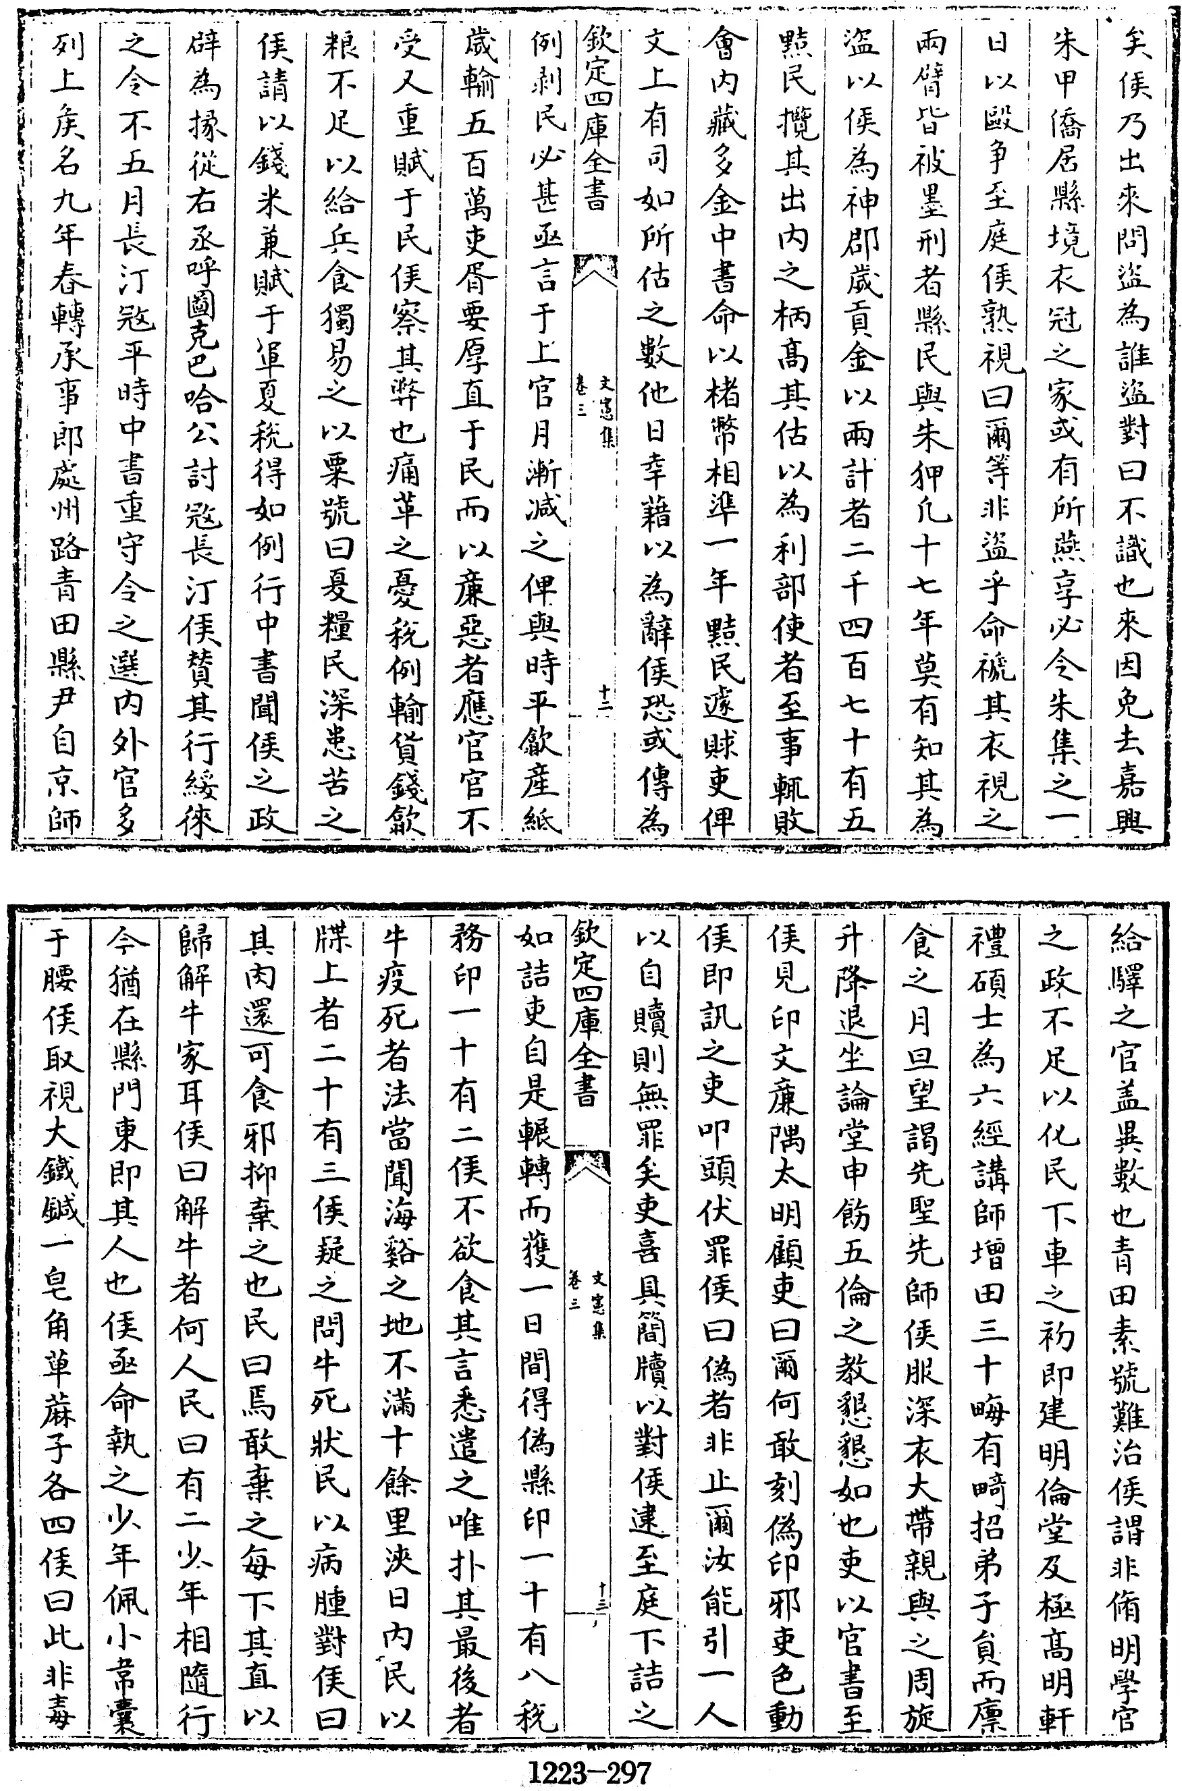 矣侯乃出來問盜為誰盜對曰不識也來因免去嘉興
朱甲僑居縣境衣冠之家或有所燕享必令朱集之一
日以毆爭至庭侯熟視曰爾等非盜乎命褫其衣視之
兩臂皆被墨刑者縣民與朱狎凡十七年莫有知其為
盜以侯為神郡歲貢金以兩計者二千四百七十有五
㸃民攬其出内之柄髙其估以為利部使者至事輒敗
會内藏多金中書命以楮幣相準一年㸃民遽賕吏俾
文上有司如所估之數他日幸藉以為辭侯恐或傳為
欽定四庫全書
文憲集
卷三
十二
例剥民必甚亟言于上官月漸减之俾與時平歙産紙
歲輸五百萬吏胥要厚直于民而以㢘惡者應官官不
受又重賦于民侯察其弊也痛革之憂稅例輸貨錢歙
粮不足以給兵食獨易之以粟號曰憂糧民深患苦之
侯請以錢米兼賦于軍夏稅得如例行中書聞侯之政
辟為掾從右丞呼圖克巴哈公討宼長汀侯賛其行綏徠
之令不五月長汀宼平時中書重守令之選内外官多
列上矦名九年春轉承事郎處州路青田縣尹自京師
給驛之官盖異數也青田素號難治侯謂非脩明學官
之政不足以化民下車之初即建明倫堂及極髙明軒
禮碩士為六經講師增田三十畮有畸招弟子貟而廪
食之月旦望謁先聖先師侯服深衣大帶親與之周旋
升降退坐論堂申飭五倫之教懇懇如也吏以官書至
侯見印文㢘隅太明顧吏曰爾何敢刻偽印邪吏色動
侯即訊之吏叩頭伏罪侯曰偽者非止爾汝能引一人
以自贖則無罪矣吏喜具簡牘以對侯逮至庭下詰之
欽定四庫全書
文憲集
卷三
十三
如詰吏自是輾轉而獲一日間得偽縣印一十有八稅
務印一十有二侯不欲食其言悉遣之唯扑其最後者
牛疫死者法當聞海谿之地不滿十餘里浹日内民以
牒上者二十有三侯疑之問牛死狀民以病腫對侯曰
其肉還可食邪抑棄之也民曰焉敢棄之每下其直以
歸解牛家耳侯曰解牛者何人民曰有二少年相隨行
今猶在縣門東即其人也侯亟命執之少年佩小韋囊
于腰侯取視大鐵鍼一皂角草蔴子各四侯曰此非毒
1223-297